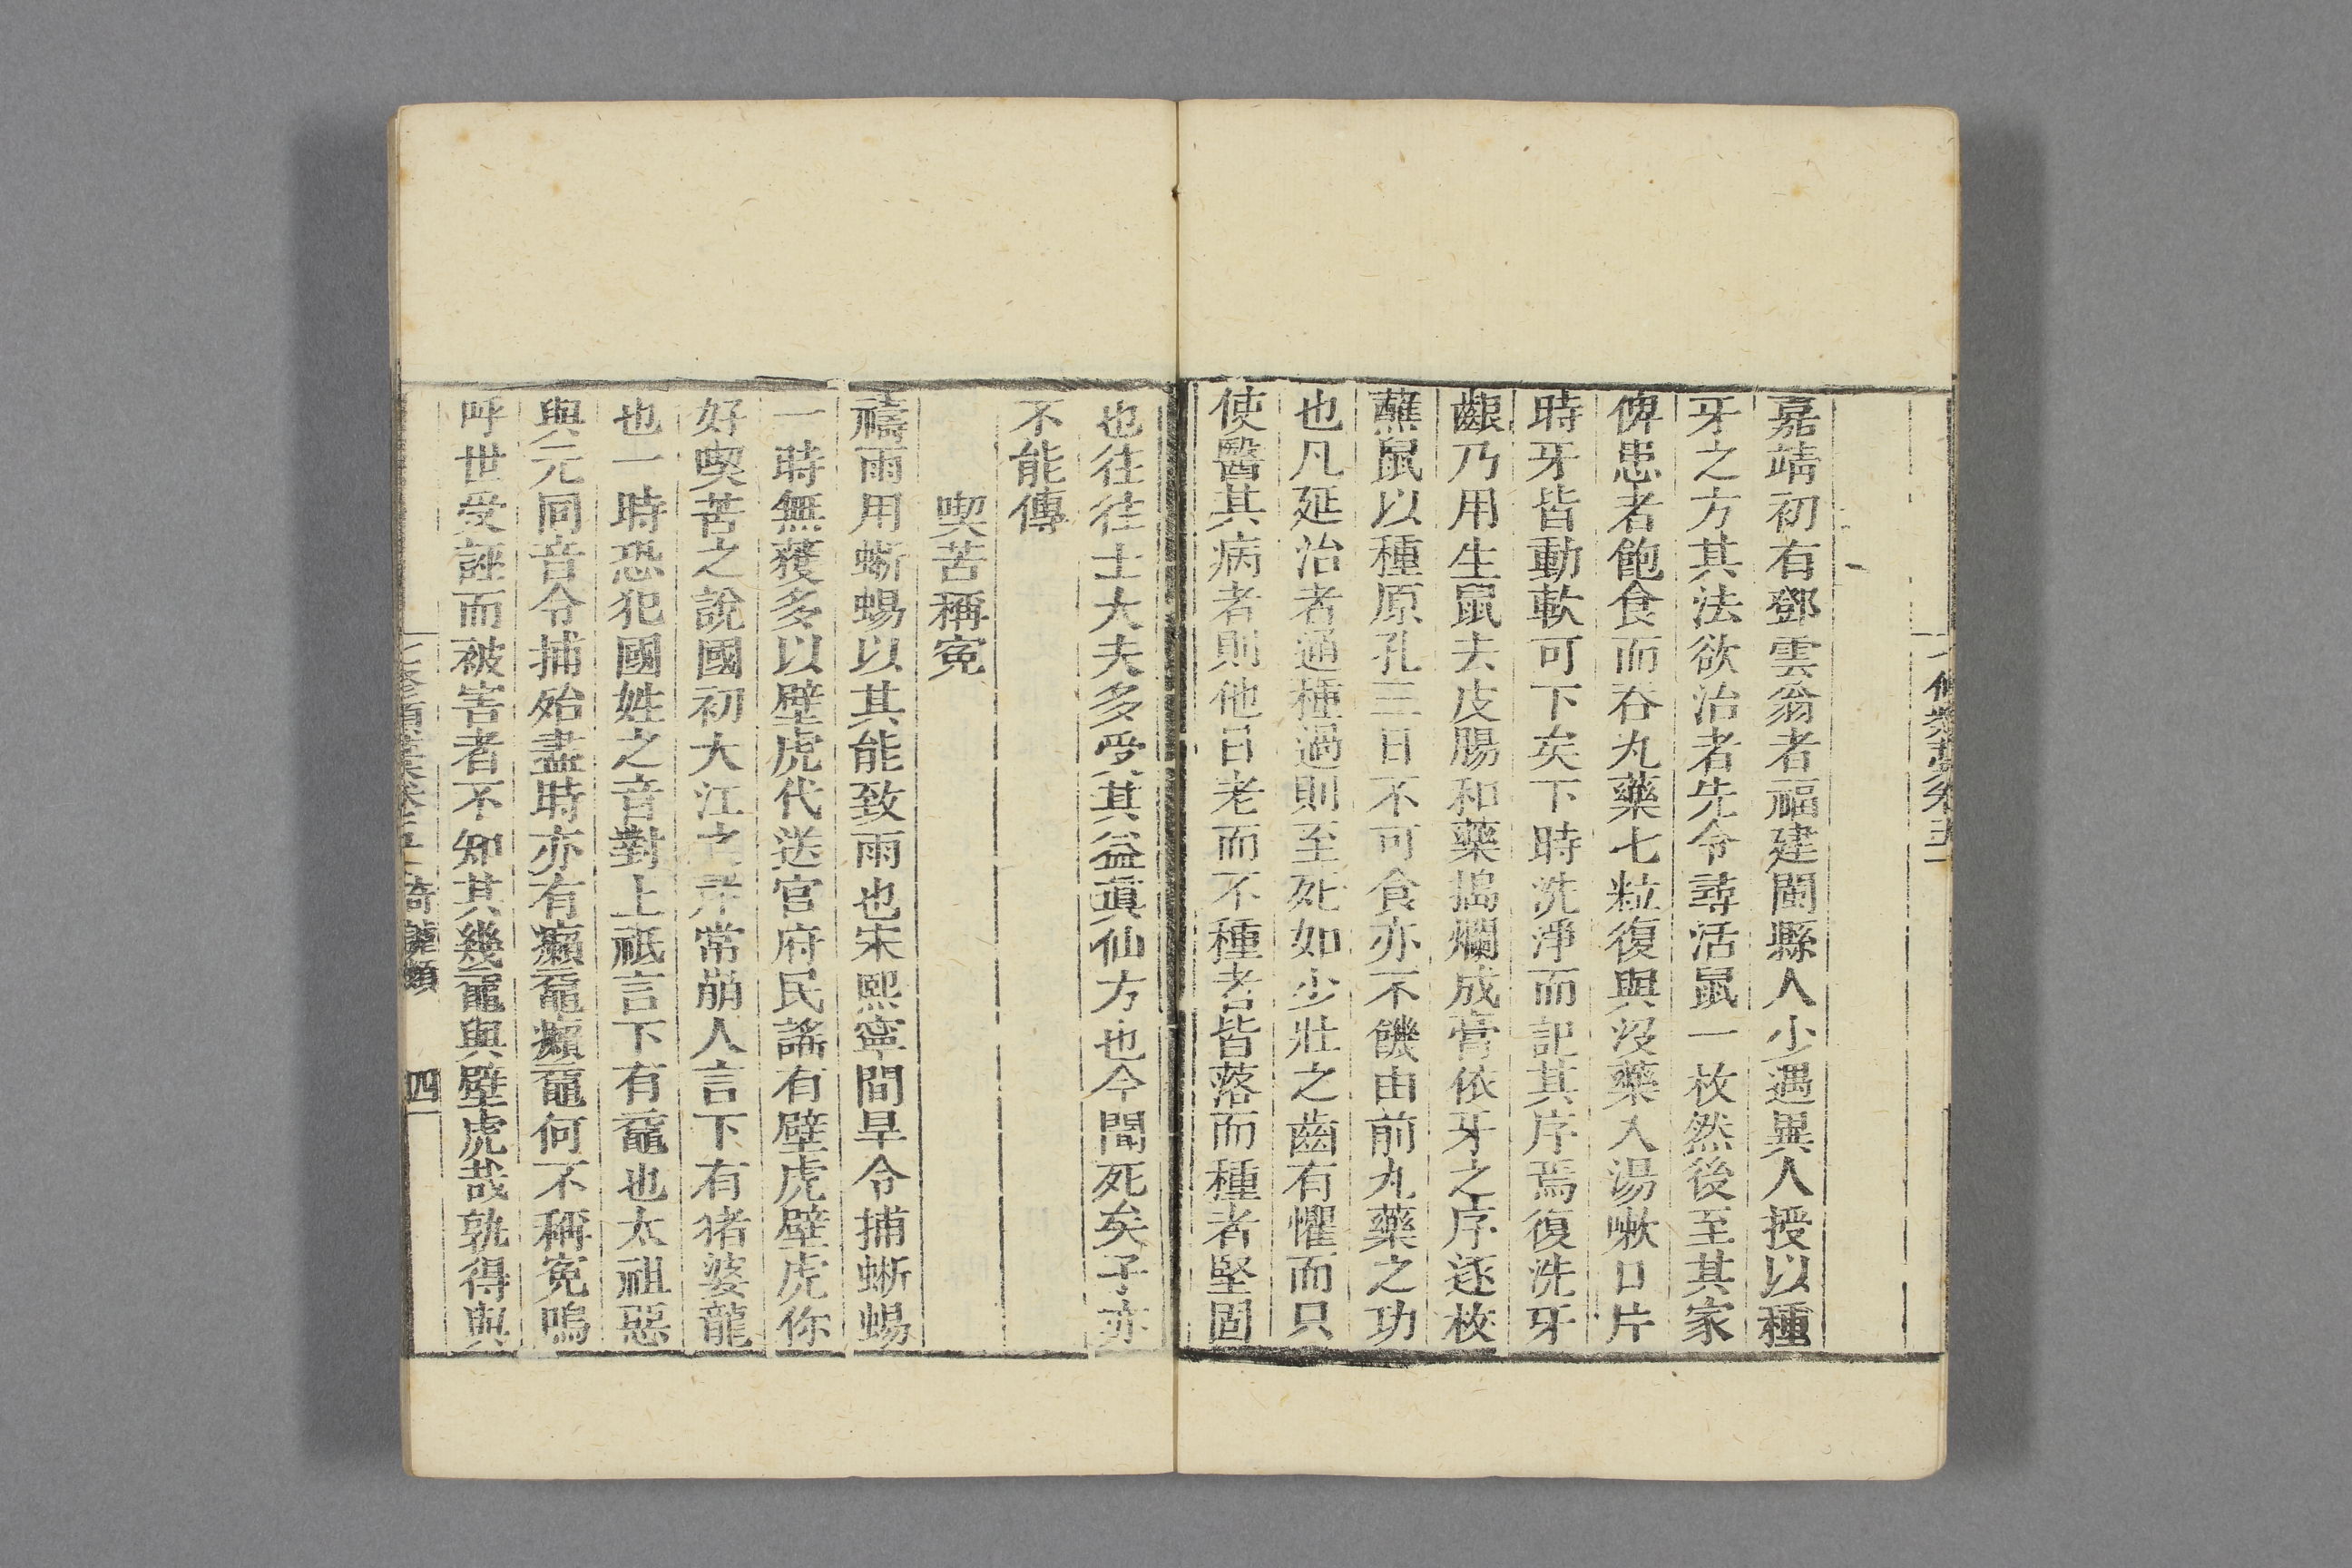 嘉靖初有鄧雲翁者福建閩縣人少遇異人授以種
牙之方其法欲治者先令尋活鼠一枚然後至其家
俾患者飽食而吞丸藥七粒復與沒藥入湯嗽口片
時牙皆動軟可下矣下時洗淨而記其序焉復洗牙
齦乃用生鼠去皮腸和藥搗爛成膏依牙之序逐枚
蘸鼠以種原孔三日不可食亦不饑由前丸藥之功
也凡延治者通種過則至死如少壯之齒有懼而只
使醫其病者則他日老而不種者皆落而種者堅固
也往往士大夫多受其益眞仙方也今聞死矣子亦
不能傳
喫苦稱寃
禱雨用蜥蜴以其能致雨也宋熙寧間旱令捕蜥蜴
一時無獲多以壁虎代送官府民謠有壁虎壁虎你
好喫苦之說國初大江之岸常崩人言下有猪婆龍
也一時恐犯國姓之音對上祇言下有黿也太祖惡
與元同音令捕殆盡時亦有癩黿癩黿何不稱寃嗚
呼世受誣而被害者不知其幾黿與壁虎哉孰得與
奇謔類
四